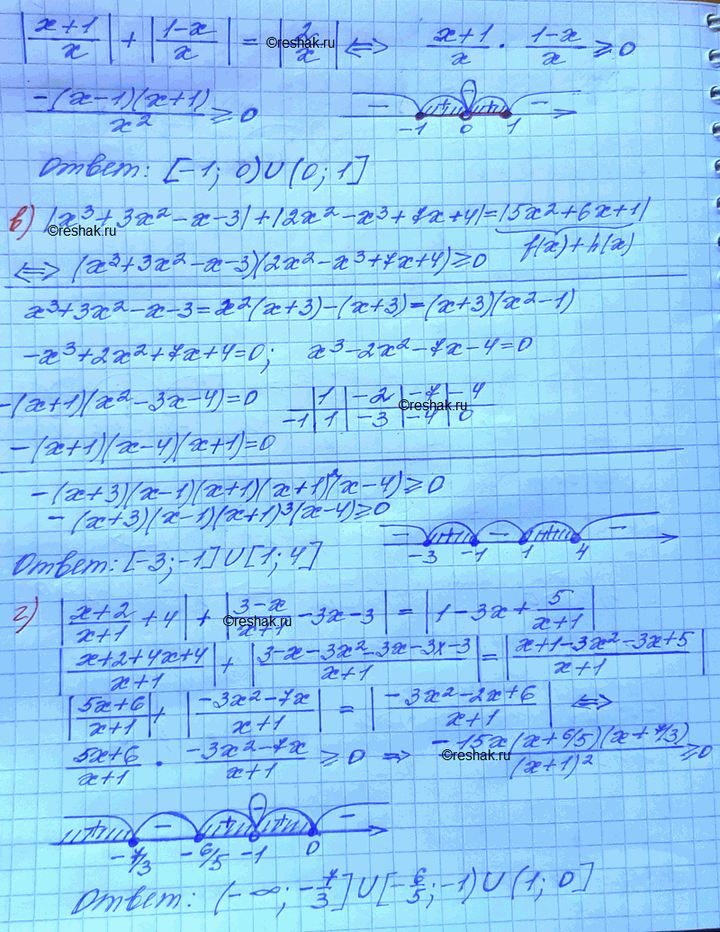 |x+1/x| + |1-x/x| = |2/x| ⟺ x+1/x · 1-x/x ≥ 0
©reshak.ru
-(x-1)(x+1)/x² ≥ 0
- + + -
-1 0 1
Ответ: [-1; 0)∪(0; 1]
в) |x³+3x²-x-3|+|2x²-x³+7x+4|=|5x2+6x+1|
©reshak.ru
f(x)+h(x)
⟺ (x³+3x²-x-3)(2x²-x³+7x+4)≥0
x³+3x²-x-3=x²(x+3)-(x+3)=(x+3)(x²-1)
-x³+2x²+7x+4=0; x³-2x²-7x-4=0
-(x+1)(x²-3x-4)=0
1 -2 -7 -4
©reshak.ru
-1 1 -3 -4 0
-(x+1)(x-4)(x+1)=0
-(x+3)(x-1)(x+1)(x+1)²(x-4)≥0
-(x+3)(x-1)(x+1)³(x-4)≥0
- + - + -
-3 -1 1 4
Ответ: [-3;-1]∪[1;4]
г) |x+2/x+1 + 4| + |3-x/x+1 -3x-3| = |1-3x+ 5/x+1|
©reshak.ru
|x+2+4x+4/x+1| + |3-x-3x²-3x-3x-3/x+1| = |x+1-3x²-3x+5/x+1|
|5x+6/x+1| + |-3x²-7x/x+1| = |-3x²-2x+6/x+1| ⟺
5x+6/x+1 · -3x²-7x/x+1 ≥ 0 ⇒ -15x(x+6/5)(x+7/3)/(x+1)² ≥0
©reshak.ru
+ - + - + -
-7/3 -6/5 -1 0
Ответ: (-∞; -7/3]∪[-6/5; -1)∪(1; 0]